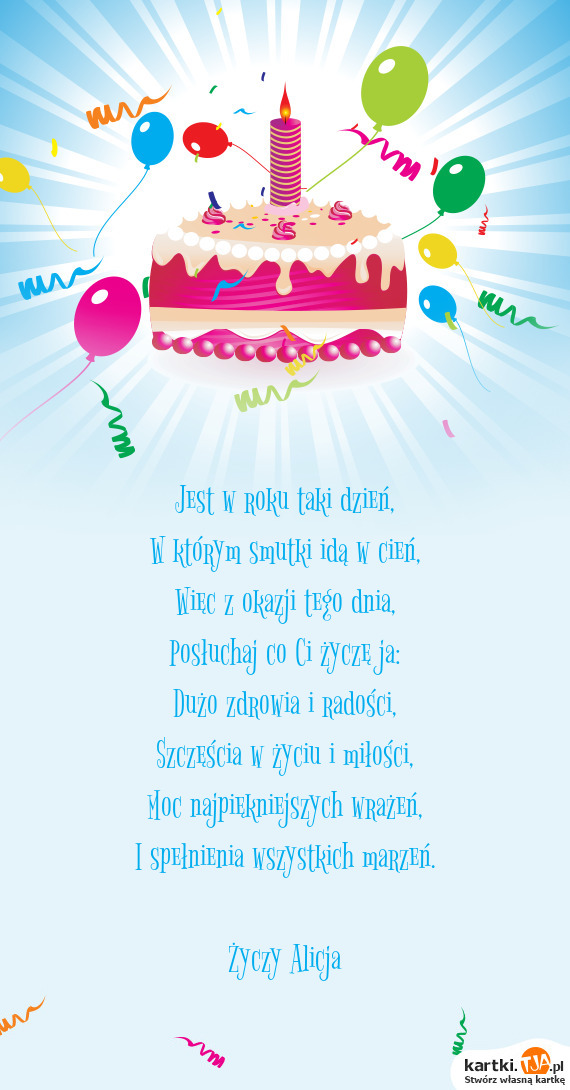 Jest w roku taki dzień,
W którym smutki idą w cień,
Więc z okazji tego dnia,
Posłuchaj co Ci życzę ja:
Dużo zdrowia i radości,
Szczęścia w życiu i miłości,
Moc najpiękniejszych wrażeń,
I spełnienia wszystkich marzeń.
Życzy Alicja
kartki.TJA.pl
Stwórz własną kartkę